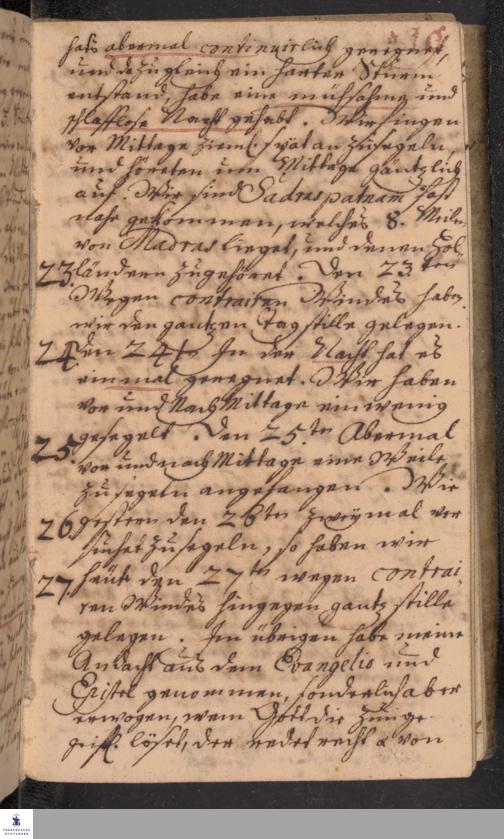 hats abermal continuirlich geregnet,
und dazugleich ein harter Sturm
entstand, habe eine mühsahme und
schlafflose Nacht gehabt. Wir fingen
vor Mittage ziemlich spät an zu segeln,
und höreten um Mittage gäntzlich
auf. Wir sind Sadraspatnam fast
nahe gekommen, welches 8. Meilen
von Madras lieget, und denen Hol¬
23 ländern zugehöret. Den 23ten
Wegen contrairen Windes haben
wir den gantzen Tag stille gelegen.
24 den 24ten In der Nacht hat es
einmal geregnet. Wir haben
vor und Nach Mittage ein wenig
25 gesegelt. Den 25.ten Abermal
vor und nach Mittage eine Weile
zu segeln angefangen. Wie
26. gestern den 26ten zweymal ver
suchet zu segeln, so haben wir
27. heüt den 27ten wegen contrai¬
ren Windes hingegen gantz stille
gelegen. Im übrigen habe meine
Andacht aus dem Evangelio und
Epistel genommen, sonderlich aber
erwogen, wem Gott die Zunge
löset, der redet recht & von